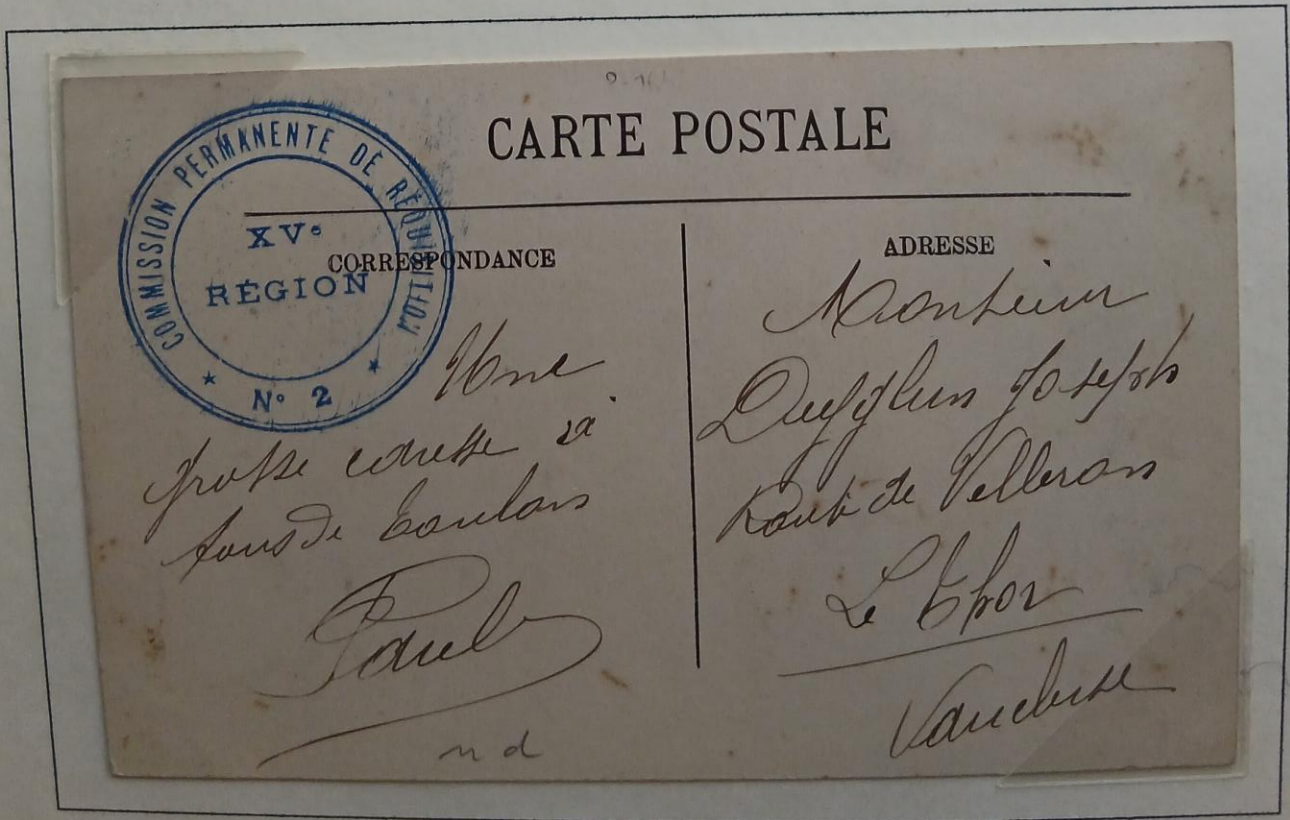 CARTE POSTALE
COMMISSION PERMANENTE DE RÉQUISITION
XVe
RÉGION
* N° 2 *
CORRESPONDANCE
Une
grosse caresse à
tous de Toulon
Paul
nd
ADRESSE
Monsieur
Joseph
Route de Velleron
Le Thor
Vaucluse